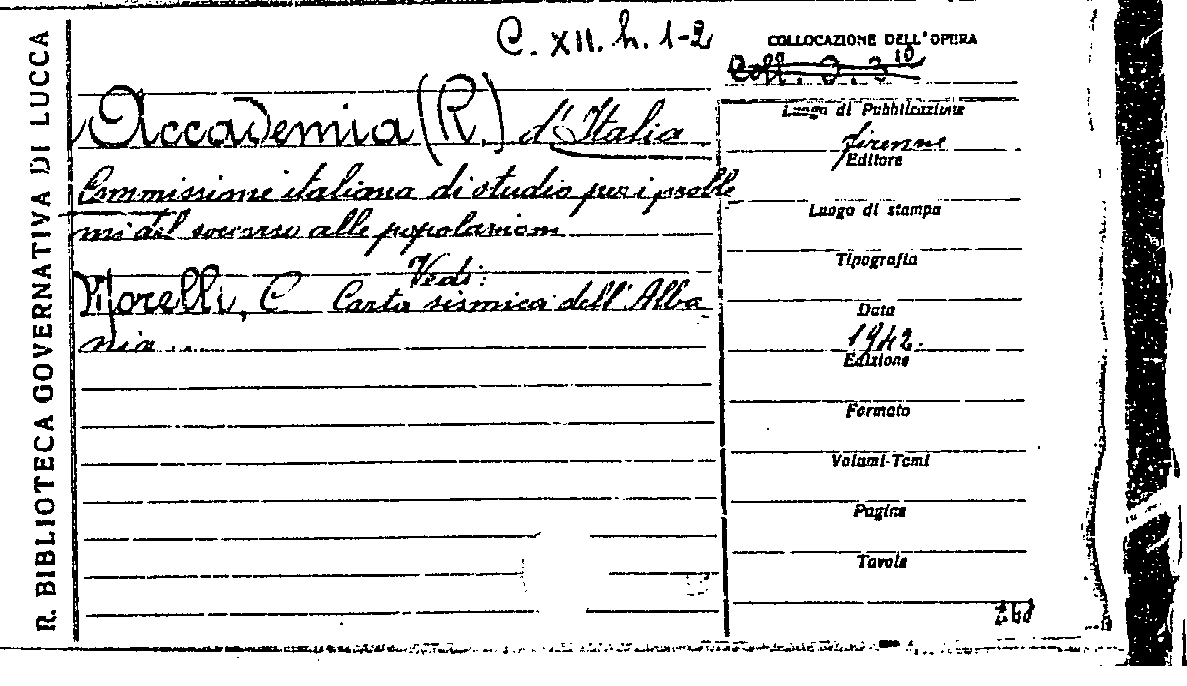 R. BIBLIOTECA GOVERNATIVA DI LUCCA
C. XII. h. 1-2
COLLOCAZIONE DELL'OPERA
Coll. 2. 3 10
Accademia (R.) d'Italia
Commissione italiana di studio per i proble
mi del soccorso alle popolazioni
Vedi:
Morelli, C Carta sismica dell'Alba
nia...
Luogo di Pubblicazione
Firenze
Editore
Luogo di stampa
Tipografia
Data
1942.
Edizione
Formato
Volumi-Tomi
Pagine
Tavole